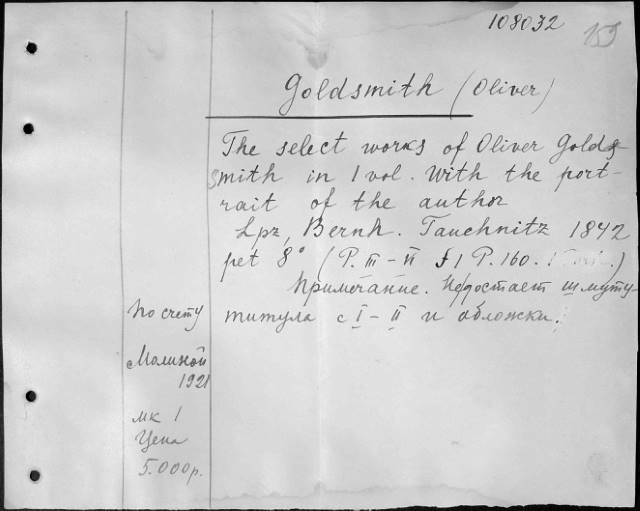 108032 153
Goldsmith (Oliver)
The select works of Oliver Gold-
smith in 1 vol. With the port-
rait of the author
Lpz, Bernh. Tauchnitz 1842
pet 8° (P. III – II f 1 P. 160.
Примечание. Недостает шмуту-
титула с I – II и обложки.
По счету
Молиной
1921
мк 1
Цена
5.000р.